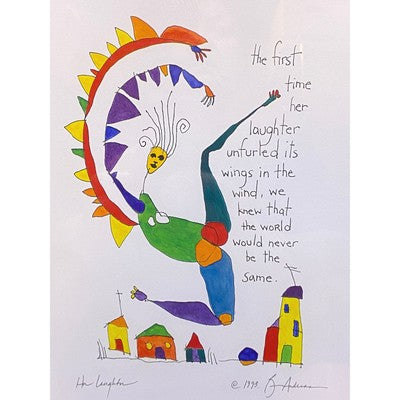 the first
time
her
laughter
unfurled its
wings in the
wind, we
knew that
the world
would never
be the
same.
Her Laughter
© 1994